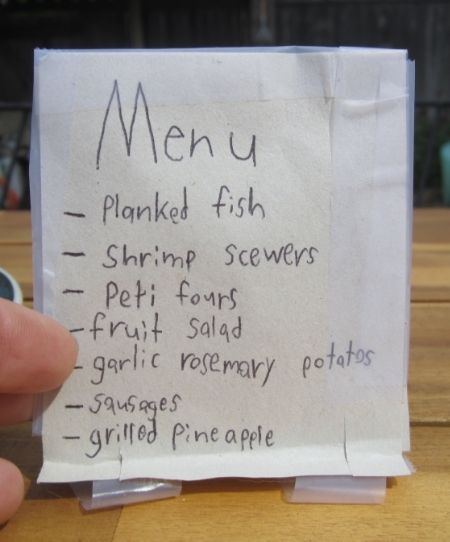 Menu
- Planked fish
- Shrimp scewers
- Peti fours
- fruit salad
- garlic rosemary potatos
- sausages
- grilled pineapple